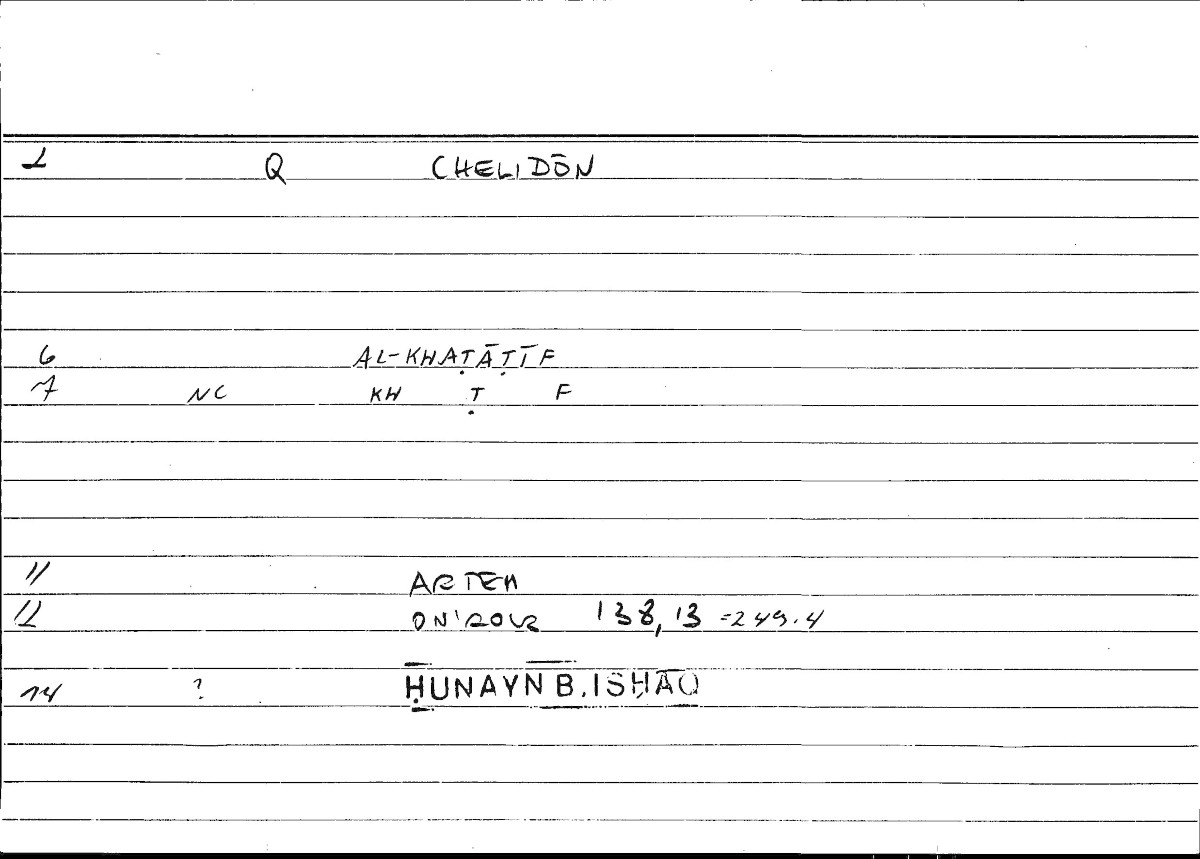 1 Q CHELIDŌN
6 AL-KHAṬĀṬĪF
7 NC KH Ṭ F
11 ARTEM
12 ON'ROCR 138,13 =249.4
14 ? ḤUNAYN B. ISḤĀQ